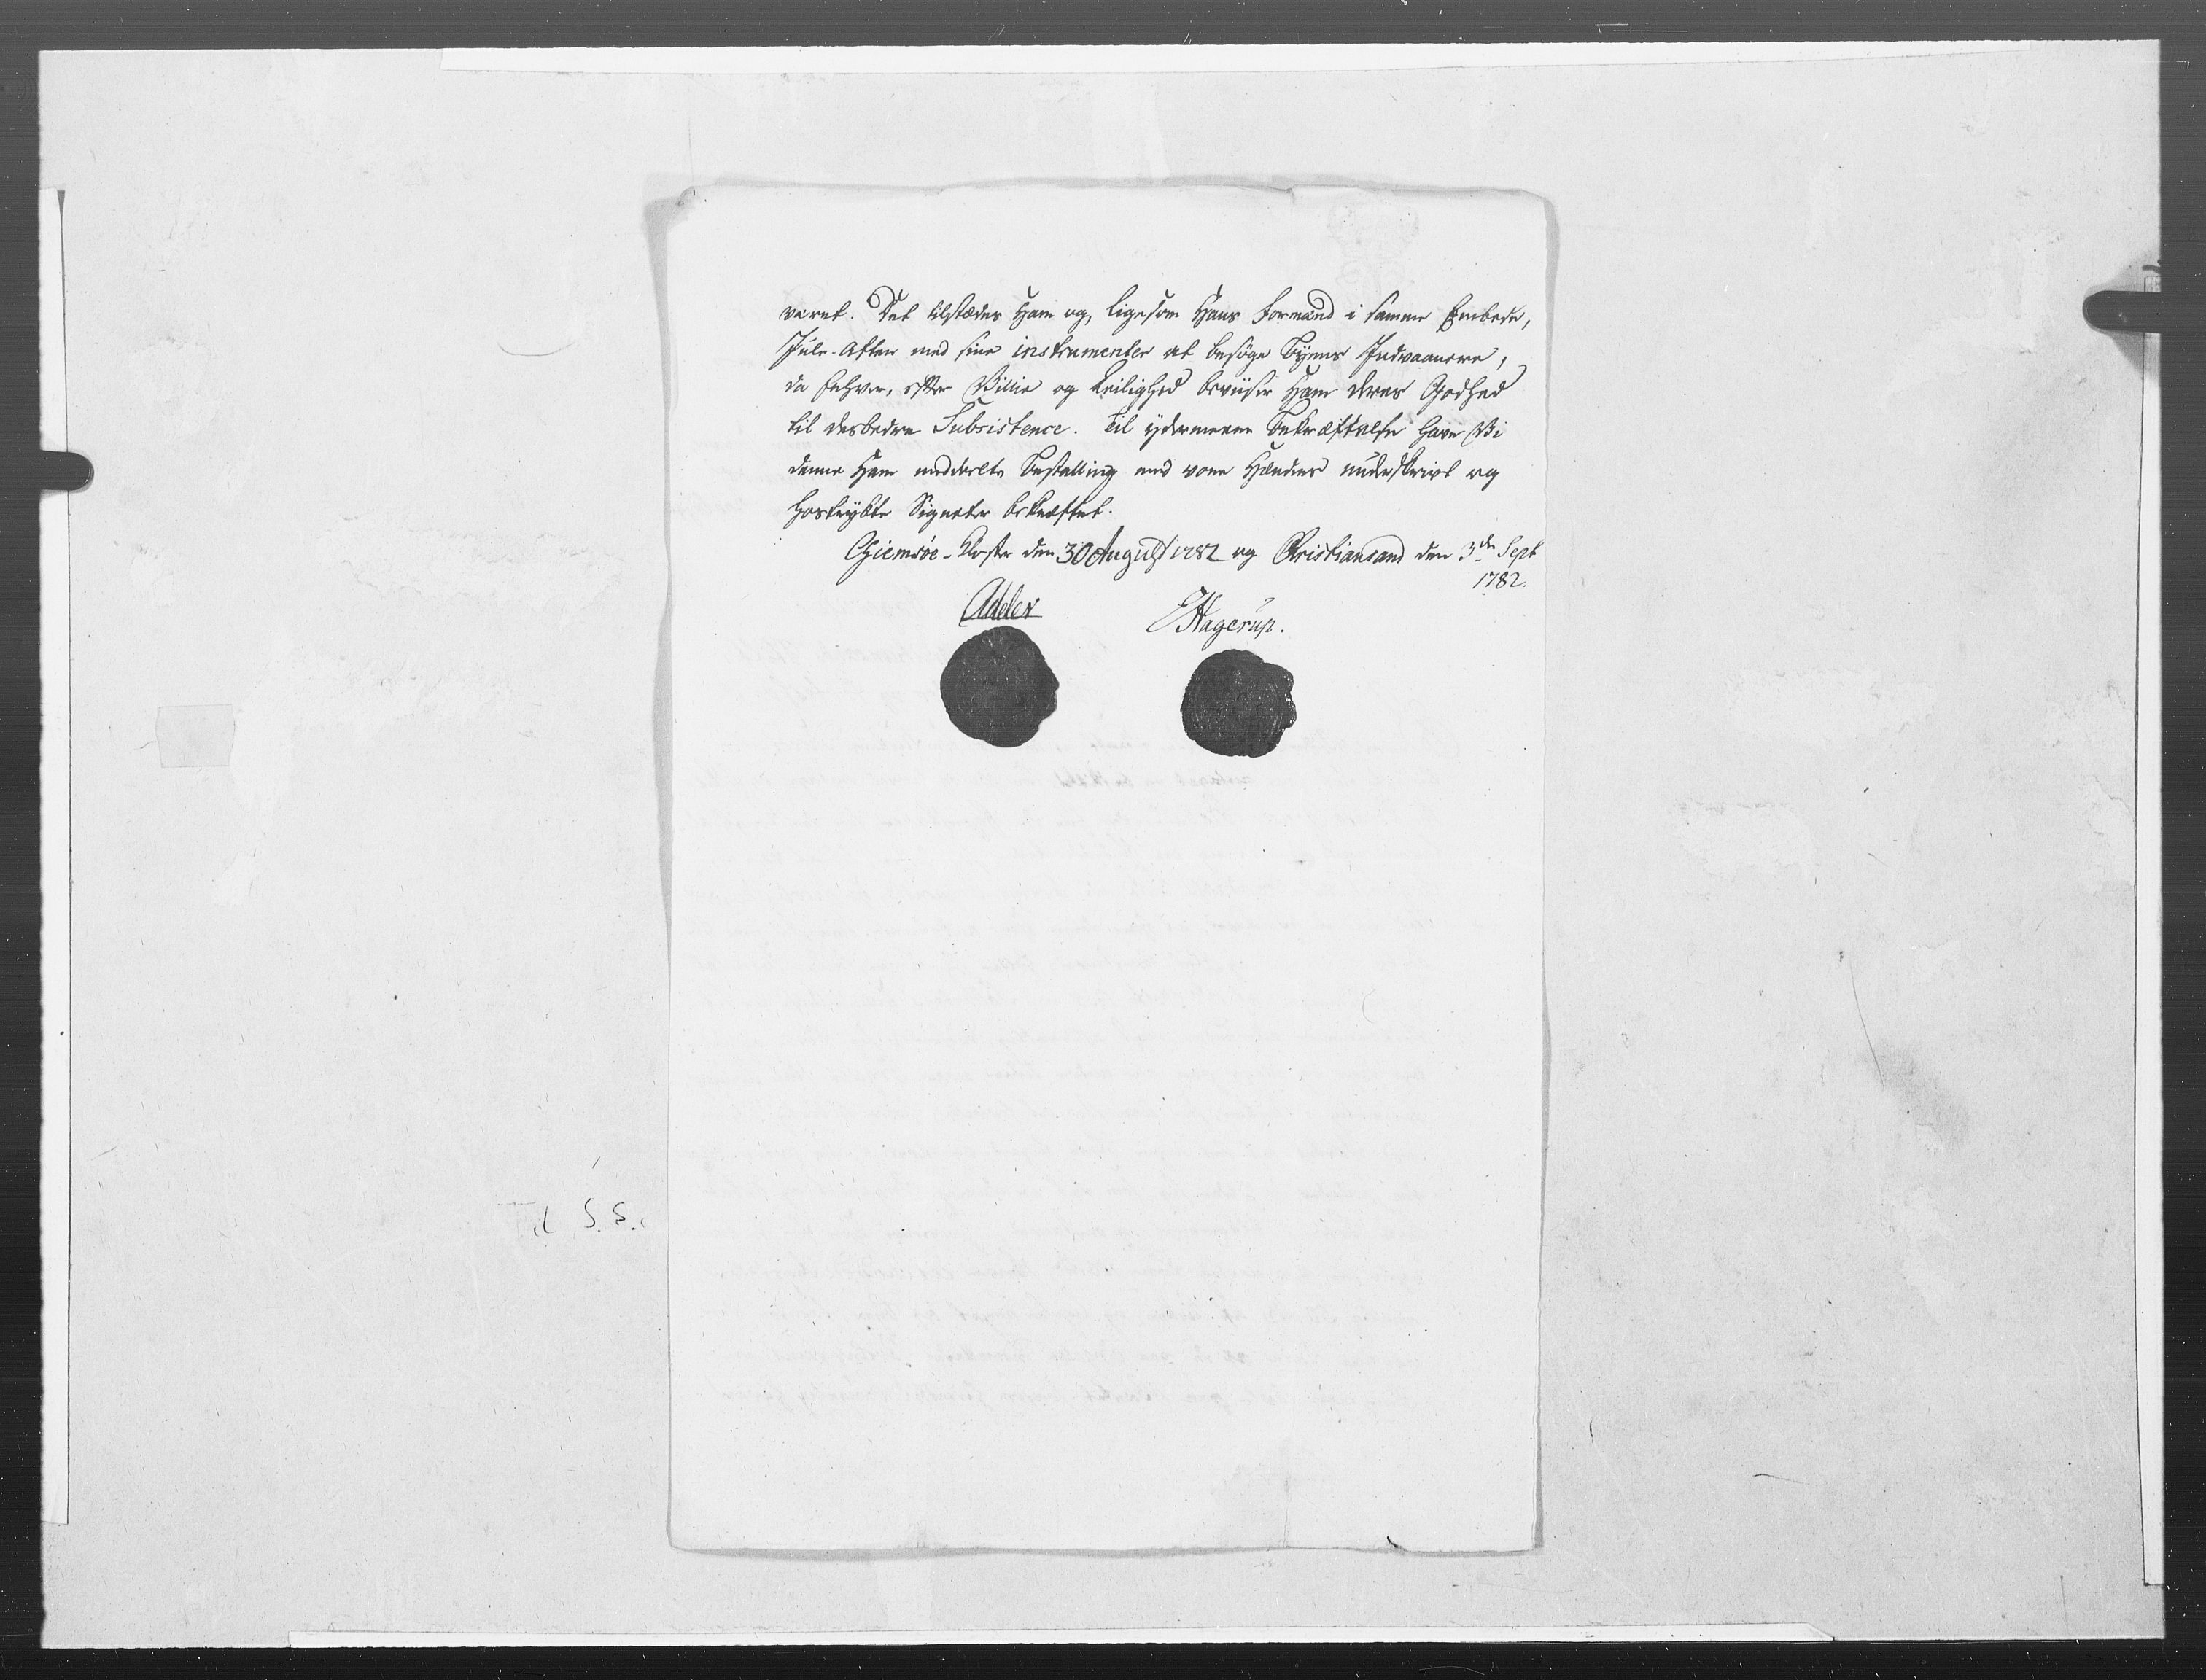 været. Det tilstædes Ham og, ligesom Hans Formænd i samme Embede,
Jule-Aften med sine instrumenter at besøge Byens Indvaanere,
da Enhver, efter Villie og Leilighed beviiser Ham deres Godhed
til desbedre Subsistence. Til ydermeere Bekræftelse have Vi
denne Ham meddeelte Bestalling med vore Hænders underskrivt og
hostrykte Signeter bekræftet.
Giemsøe-Kloster den 30 August 1782 og Christiansand den 3de Sept
1782.
Adeler
Hagerup.